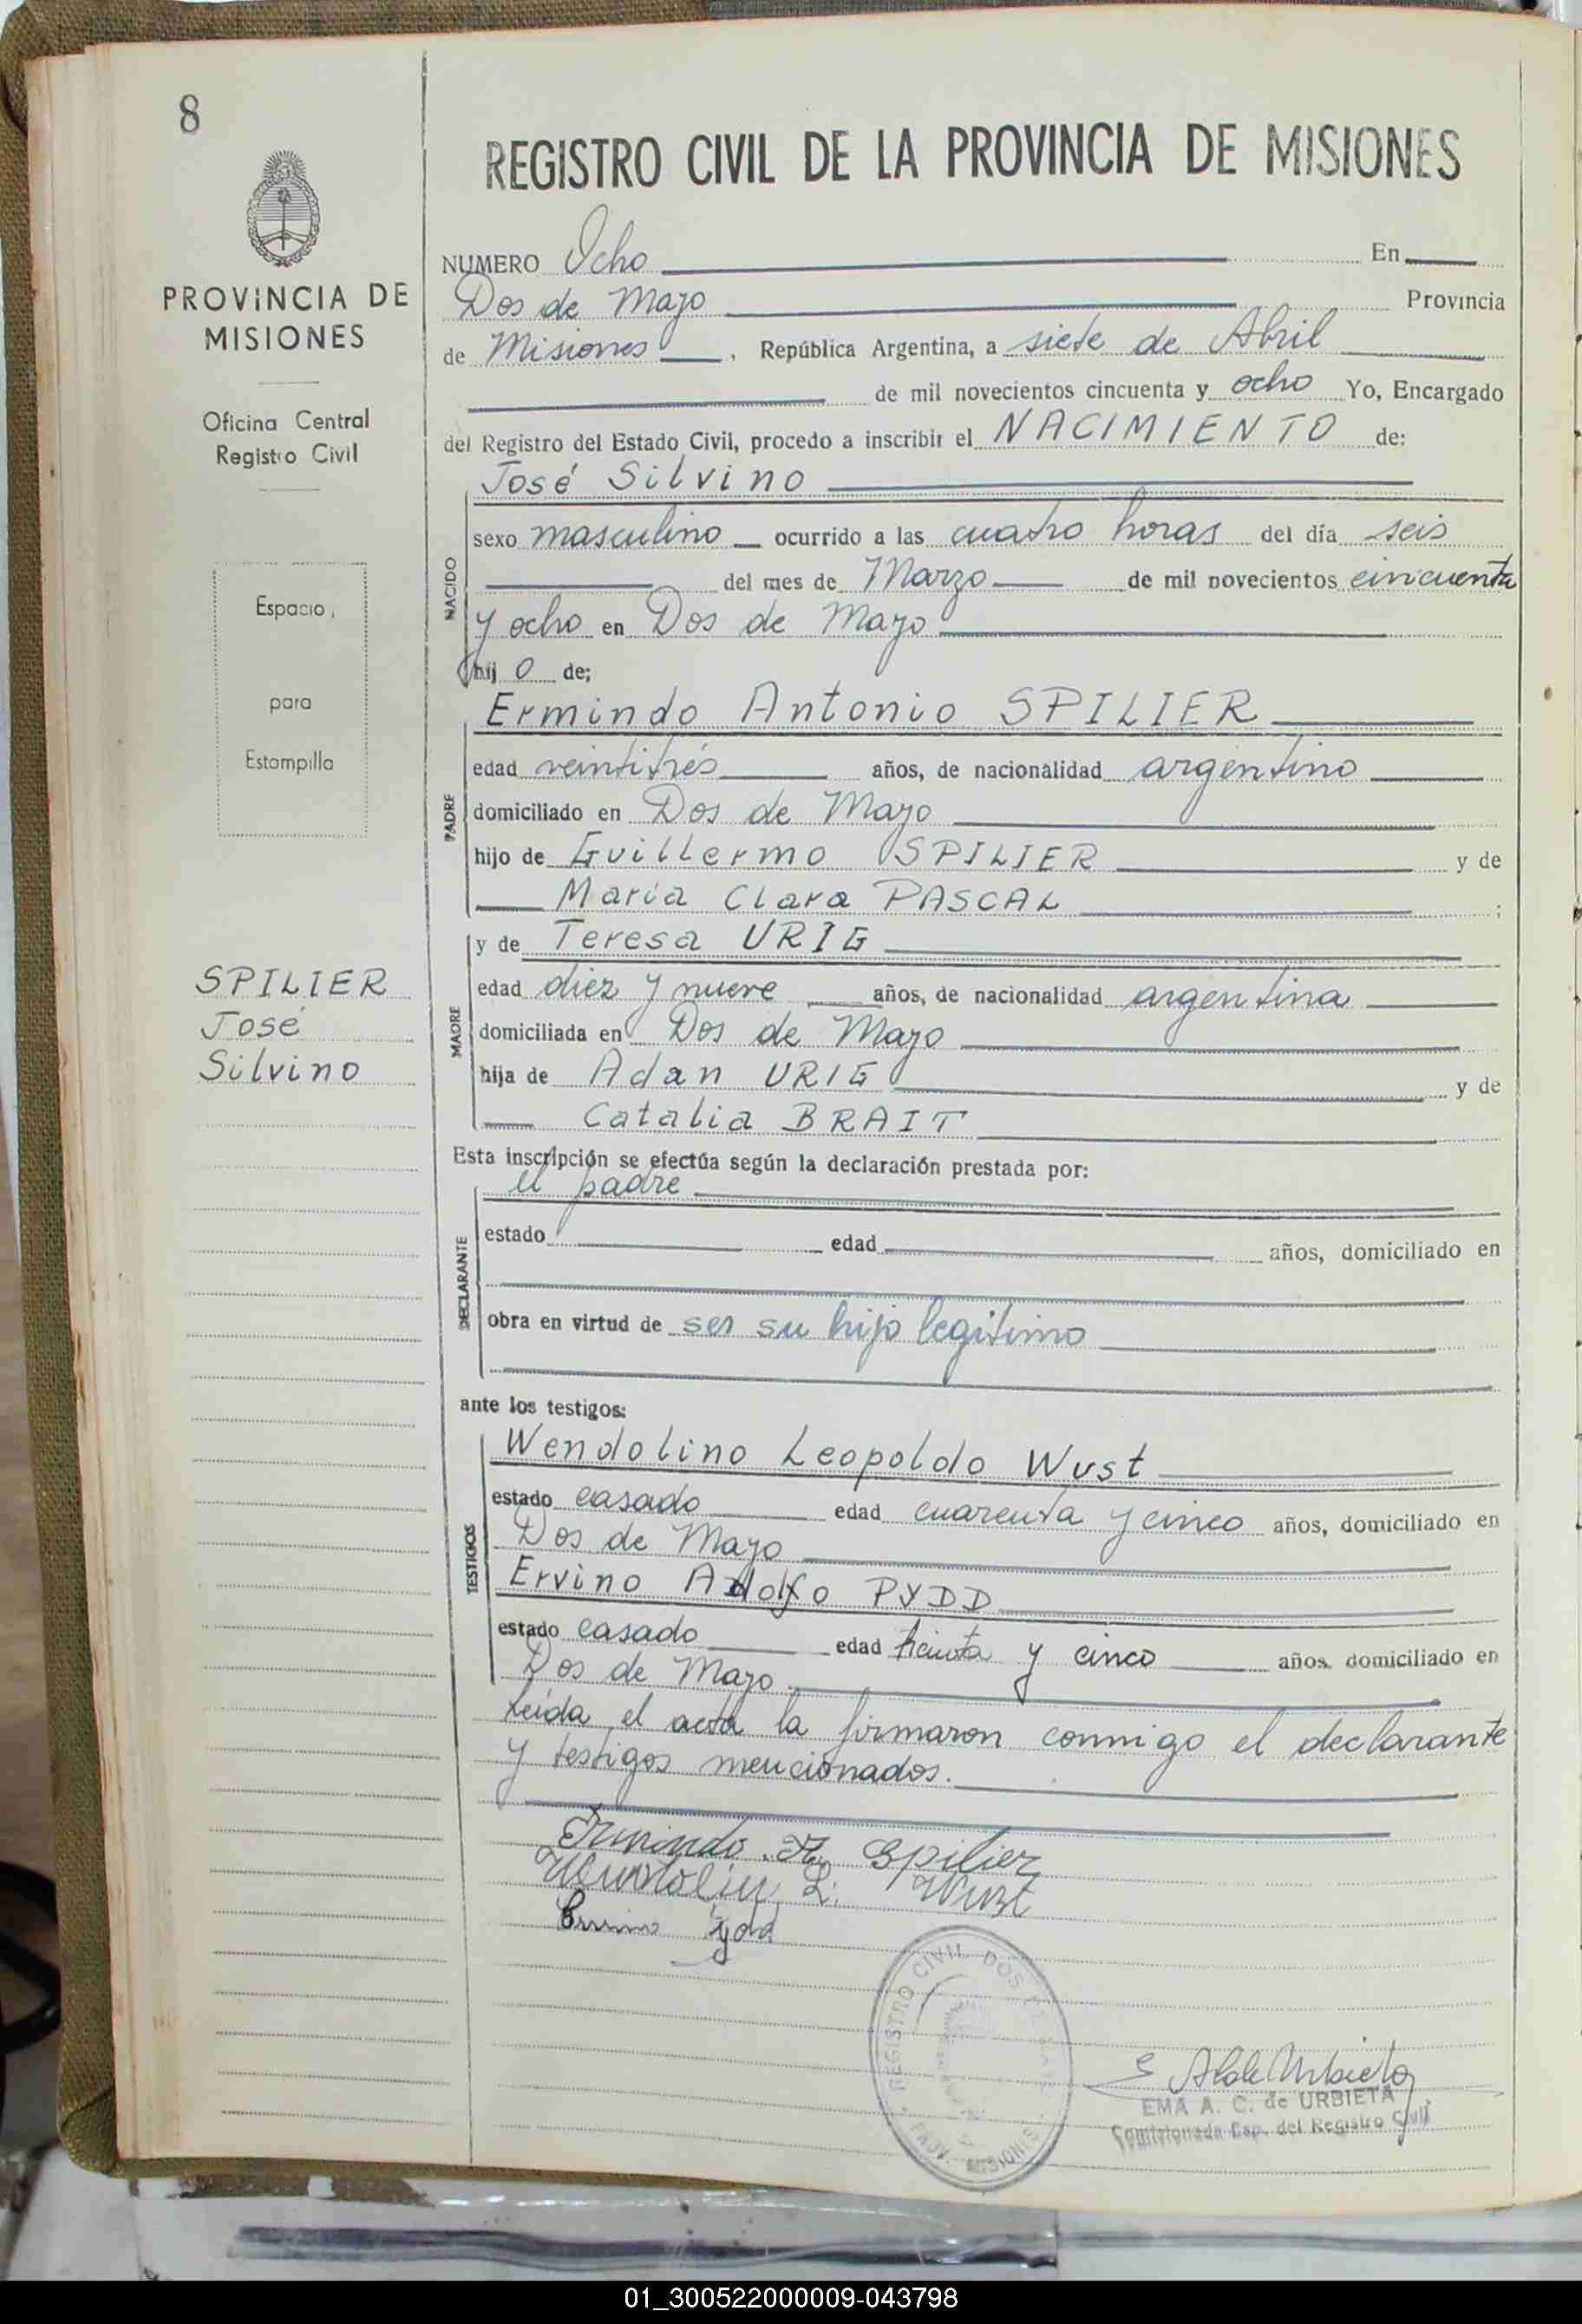 8
PROVINCIA DE
MISIONES
Oficina Central
Registro Civil
Espacio
para
Estampilla
SPILIER
José
Silvino
REGISTRO CIVIL DE LA PROVINCIA DE MISIONES
NUMERO Ocho En
Dos de Mayo Provincia
de Misiones , República Argentina, a siete de Abril
de mil novecientos cincuenta y ocho Yo, Encargado
del Registro del Estado Civil, procedo a inscribir el NACIMIENTO de:
José Silvino
NACIDO
sexo masculino ocurrido a las cuatro horas del día seis
del mes de Marzo de mil novecientos cincuenta
y ocho en Dos de Mayo
hij o de;
Ermindo Antonio SPILIER
PADRE
edad veintitrés años, de nacionalidad argentino
domiciliado en Dos de Mayo
hijo de Guillermo SPILIER y de
Maria Clara PASCAL ;
y de Teresa URIG
MADRE
edad diez y nueve años, de nacionalidad argentina
domiciliada en Dos de Mayo
hija de Adan URIG y de
Catalia BRAIT
Esta inscripción se efectúa según la declaración prestada por:
el padre
DECLARANTE
estado edad años, domiciliado en
obra en virtud de ser su hijo legítimo
ante los testigos:
Wendolino Leopoldo Wust
TESTIGOS
estado casado edad cuarenta y cinco años, domiciliado en
Dos de Mayo
Ervino Adolfo PYDD
estado casado edad treinta y cinco años, domiciliado en
Dos de Mayo
Leída el acta la firmaron conmigo el declarante
y testigos mencionados.
Ermindo A. Spilier
Wendolin L. Wust
REGISTRO CIVIL DOS DE MAYO
PROV. MISIONES
EMA A. C. de URBIETA
Comisionada Esp. del Registro Civil
01_300522000009-043798